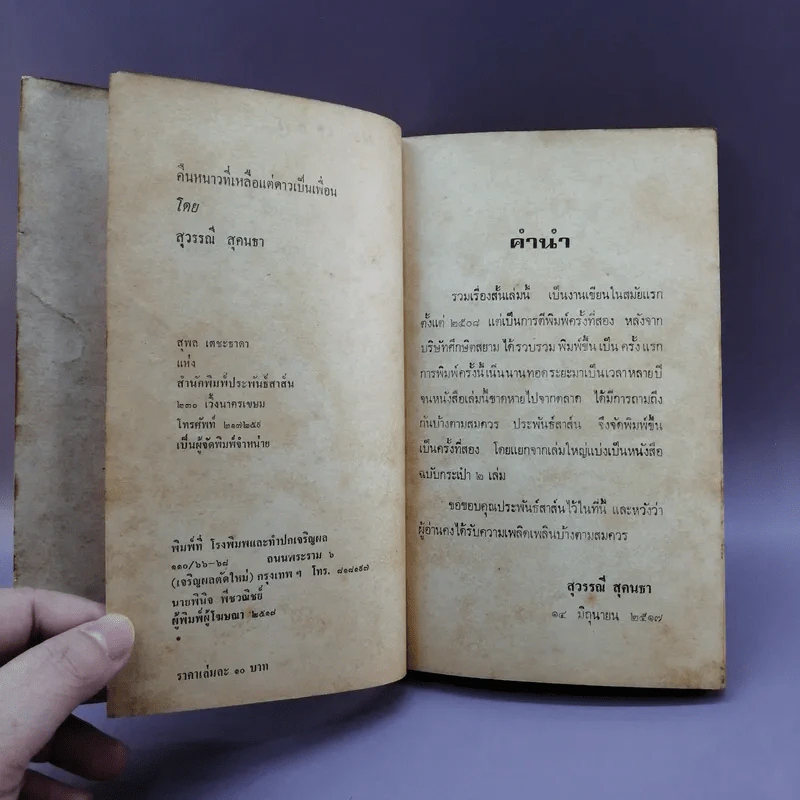 คืนหนาวที่เหลือแต่ดาวเป็นเพื่อน
โดย
สุวรรณี สุคนธา
สุพล เตชะธาดา
แห่ง
สำนักพิมพ์ประพันธ์สาส์น
๒๓๐ เวิ้งนาครเขษม
โทรศัพท์ ๒๑๗๒๕๙
เป็นผู้จัดพิมพ์จำหน่าย
พิมพ์ที่ โรงพิมพและทำปกเจริญผล
๑๑๐/๖๖-๖๘ ถนนพระราม ๖
(เจริญผลตัดใหม่) กรุงเทพ ฯ โทร. ๘๑๘๑๙๗
นายพินิจ พืชวณิชย์
ผู้พิมพ์ผู้โฆษณา ๒๕๑๘
๑
ราคาเล่มละ ๑๐ บาท
คำนำ
รวมเรื่องสั้นเล่มนี้ เป็นงานเขียนในสมัยแรก
ตั้งแต่ ๒๕๐๘ แต่เป็นการตีพิมพ์ครั้งที่สอง หลังจาก
บริษัทศึกษิตสยาม ได้รวบรวม พิมพ์ขึ้น เป็น ครั้ง แรก
การพิมพ์ครั้งนี้เนิ่นนานทอดระยะมาเป็นเวลาหลายปี
จนหนังสือเล่มนี้ขาดหายไปจากตลาด ได้มีการถามถึง
กันบ้างตามสมควร ประพันธ์สาส์น จึงจัดพิมพ์ขึ้น
เป็นครั้งที่สอง โดยแยกจากเล่มใหญ่แบ่งเป็นหนังสือ
ฉบับกระเป๋า ๒ เล่ม
ขอขอบคุณประพันธ์สาส์นไว้ในที่นี้ และหวังว่า
ผู้อ่านคงได้รับความเพลิดเพลินบ้างตามสมควร
สุวรรณี สุคนธา
๑๔ มิถุนายน ๒๕๑๗